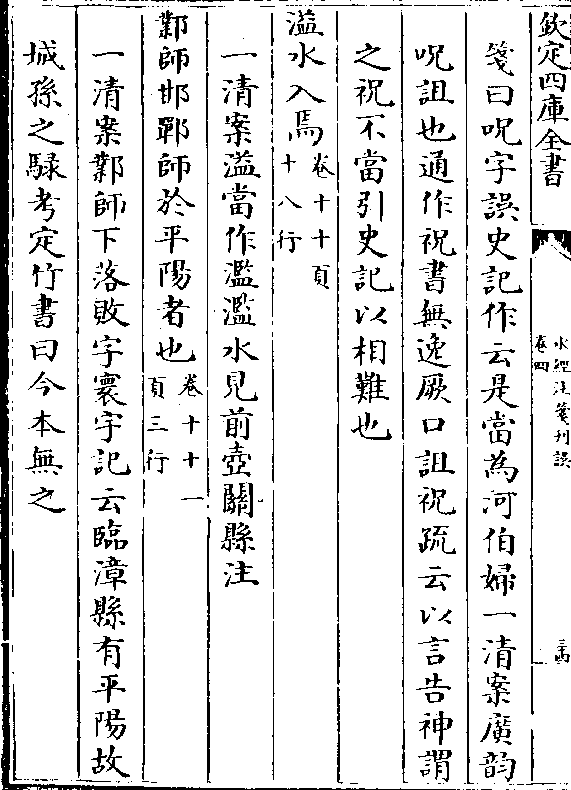 欽定四庫全書
水經注箋刊誤
卷四
箋曰呪字誤史記作云是當為河伯婦一清案廣韵
呪詛也通作祝書無逸厥口詛祝疏云以言告神謂
之祝不當引史記以相難也
溢水入焉卷十十頁十八行
一清案溢當作濫濫水見前壺關縣注
鄴師邯鄲師於平陽者也卷十十一頁三行
一清案鄴師下落敗字寰宇記云臨漳縣有平陽故
城孫之騄考定竹書曰今本無之